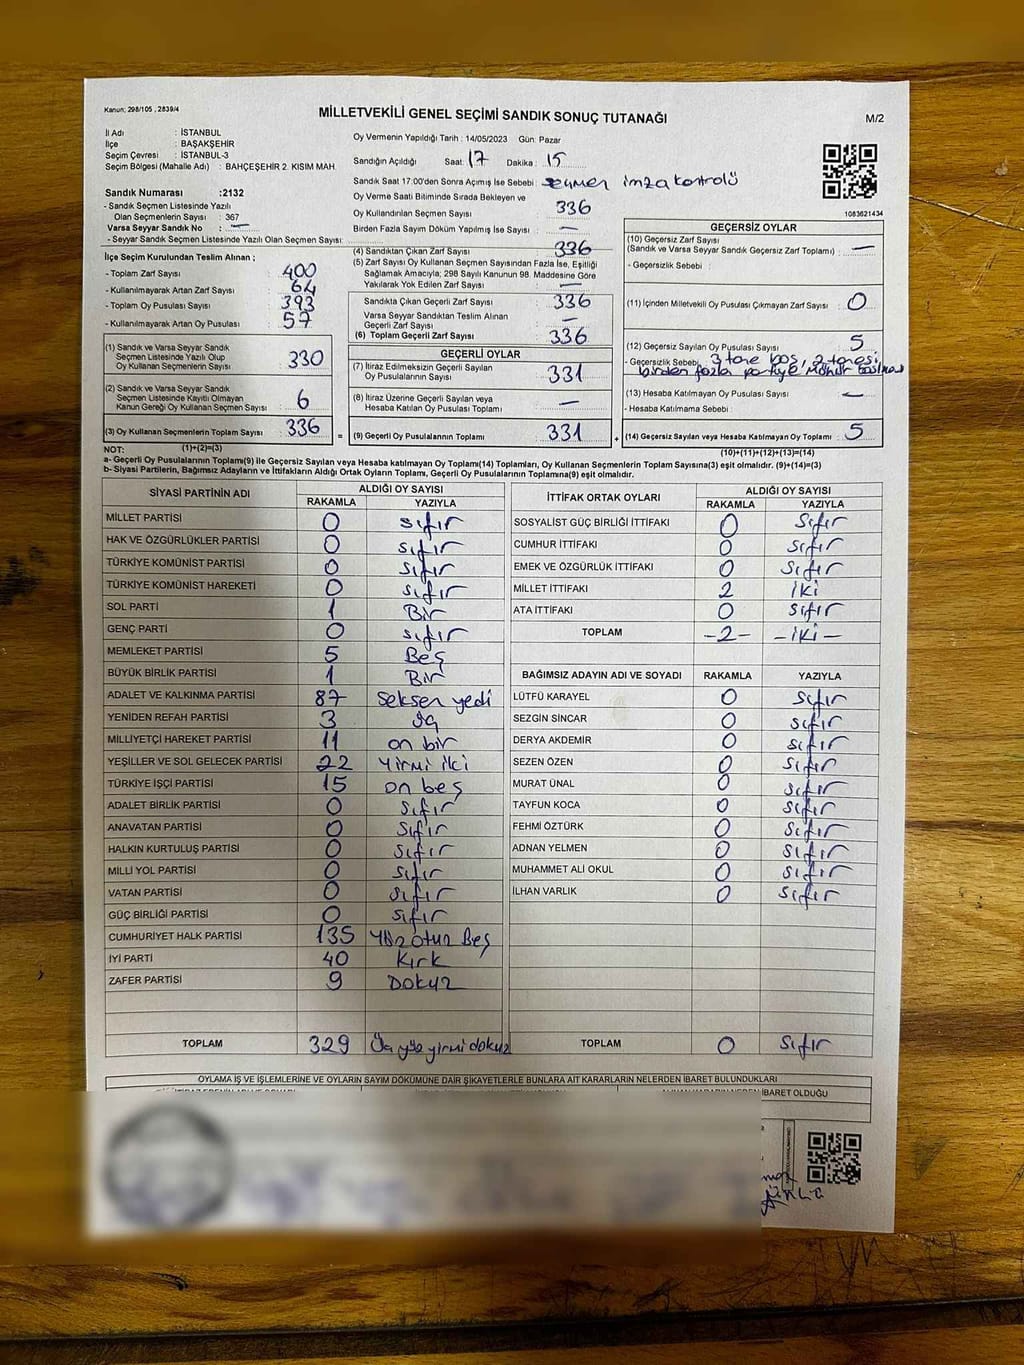 Kanun; 298/105 , 2839/4
MİLLETVEKİLİ GENEL SEÇİMİ SANDIK SONUÇ TUTANAĞI
M/2
İl Adı : İSTANBUL
İlçe : BAŞAKŞEHİR
Seçim Çevresi : İSTANBUL-3
Seçim Bölgesi (Mahalle Adı) : BAHÇEŞEHİR 2. KISIM MAH.
Sandık Numarası :2132
- Sandık Seçmen Listesinde Yazılı
Olan Seçmenlerin Sayısı : 367
Varsa Seyyar Sandık No : —
- Seyyar Sandık Seçmen Listesinde Yazılı Olan Seçmen Sayısı:
Oy Vermenin Yapıldığı Tarih : 14/05/2023 Gün: Pazar
Sandığın Açıldığı Saat: 17 Dakika : 15
Sandık Saat 17.00'den Sonra Açımış İse Sebebi : seçmen imza kontrolü
Oy Verme Saati Bitiminde Sırada Bekleyen ve
Oy Kullandırılan Seçmen Sayısı : 336
Birden Fazla Sayım Döküm Yapılmış İse Sayısı : —
1083621434
İlçe Seçim Kurulundan Teslim Alınan ;
- Toplam Zarf Sayısı : 400
- Kullanılmayarak Artan Zarf Sayısı : 64
- Toplam Oy Pusulası Sayısı : 393
- Kullanılmayarak Artan Oy Pusulası : 57
(1) Sandık ve Varsa Seyyar Sandık
Seçmen Listesinde Yazılı Olup
Oy Kullanan Seçmenlerin Sayısı : 330
(2) Sandık ve Varsa Seyyar Sandık
Seçmen Listesinde Kayıtlı Olmayan
Kanun Gereği Oy Kullanan Seçmen Sayısı : 6
(3) Oy Kullanan Seçmenlerin Toplam Sayısı : 336
(1)+(2)=(3)
(4) Sandıktan Çıkan Zarf Sayısı : 336
(5) Zarf Sayısı Oy Kullanan Seçmen Sayısından Fazla İse, Eşitliği
Sağlamak Amacıyla; 298 Sayılı Kanunun 98. Maddesine Göre
Yakılarak Yok Edilen Zarf Sayısı : —
Sandıkta Çıkan Geçerli Zarf Sayısı : 336
Varsa Seyyar Sandıktan Teslim Alınan
Geçerli Zarf Sayısı : —
(6) Toplam Geçerli Zarf Sayısı : 336
GEÇERLİ OYLAR
(7) İtiraz Edilmeksizin Geçerli Sayılan
Oy Pusulalarının Sayısı : 331
(8) İtiraz Üzerine Geçerli Sayılan veya
Hesaba Katılan Oy Pusulası Toplamı : —
= (9) Geçerli Oy Pusulalarının Toplamı : 331
GEÇERSİZ OYLAR
(10) Geçersiz Zarf Sayısı
(Sandık ve Varsa Seyyar Sandık Geçersiz Zarf Toplamı) : —
- Geçersizlik Sebebi :
(11) İçinden Milletvekili Oy Pusulası Çıkmayan Zarf Sayısı : 0
(12) Geçersiz Sayılan Oy Pusulası Sayısı : 5
- Geçersizlik Sebebi: 3 tane boş, 2 tanesi
birden fazla partiye mühür basılması
(13) Hesaba Katılmayan Oy Pusulası Sayısı : —
- Hesaba Katılmama Sebebi :
+ (14) Geçersiz Sayılan veya Hesaba Katılmayan Oy Toplamı : 5
(10)+(11)+(12)+(13)=(14)
NOT:
a- Geçerli Oy Pusulaları Toplamı(9) ile Geçersiz Sayılan veya Hesaba katılmayan Oy Toplamı(14) Toplamları, Oy Kullanan Seçmenlerin Toplam Sayısına(3) eşit olmalıdır. (9)+(14)=(3)
b- Siyasi Partilerin, Bağımsız Adayların ve İttifakların Aldığı Oyların Toplamı, Geçerli Oy Pusulalarının Toplamına(9) eşit olmalıdır.
SİYASİ PARTİNİN ADI ALDIĞI OY SAYISI
RAKAMLA YAZIYLA
MİLLET PARTİSİ 0 sıfır
HAK VE ÖZGÜRLÜKLER PARTİSİ 0 sıfır
TÜRKİYE KOMÜNİST PARTİSİ 0 sıfır
TÜRKİYE KOMÜNİST HAREKETİ 0 sıfır
SOL PARTİ 1 Bir
GENÇ PARTİ 0 sıfır
MEMLEKET PARTİSİ 5 Beş
BÜYÜK BİRLİK PARTİSİ 1 Bir
ADALET VE KALKINMA PARTİSİ 87 seksen yedi
YENİDEN REFAH PARTİSİ 3 üç
MİLLİYETÇİ HAREKET PARTİSİ 11 on bir
YEŞİLLER VE SOL GELECEK PARTİSİ 22 Yirmi iki
TÜRKİYE İŞÇİ PARTİSİ 15 on beş
ADALET BİRLİK PARTİSİ 0 sıfır
ANAVATAN PARTİSİ 0 sıfır
HALKIN KURTULUŞ PARTİSİ 0 sıfır
MİLLİ YOL PARTİSİ 0 sıfır
VATAN PARTİSİ 0 sıfır
GÜÇ BİRLİĞİ PARTİSİ 0 sıfır
CUMHURİYET HALK PARTİSİ 135 Yüz otuz Beş
İYİ PARTİ 40 Kırk
ZAFER PARTİSİ 9 Dokuz
TOPLAM 329 Üç yüz yirmi dokuz
İTTİFAK ORTAK OYLARI ALDIĞI OY SAYISI
RAKAMLA YAZIYLA
SOSYALİST GÜÇ BİRLİĞİ İTTİFAKI 0 Sıfır
CUMHUR İTTİFAKI 0 sıfır
EMEK VE ÖZGÜRLÜK İTTİFAKI 0 Sıfır
MİLLET İTTİFAKI 2 iki
ATA İTTİFAKI 0 sıfır
TOPLAM -2- -iki-
BAĞIMSIZ ADAYIN ADI VE SOYADI RAKAMLA YAZIYLA
LÜTFÜ KARAYEL 0 sıfır
SEZGİN SİNCAR 0 sıfır
DERYA AKDEMİR 0 sıfır
SEZEN ÖZEN 0 sıfır
MURAT ÜNAL 0 sıfır
TAYFUN KOCA 0 sıfır
FEHMİ ÖZTÜRK 0 sıfır
ADNAN YELMEN 0 sıfır
MUHAMMET ALİ OKUL 0 sıfır
İLHAN VARLIK 0 sıfır
TOPLAM 0 sıfır
OYLAMA İŞ VE İŞLEMLERİNE VE OYLARIN SAYIM DÖKÜMÜNE DAİR ŞİKAYETLERLE BUNLARA AİT KARARLARIN NELERDEN İBARET BULUNDUKLARI
İBARET OLDUĞU